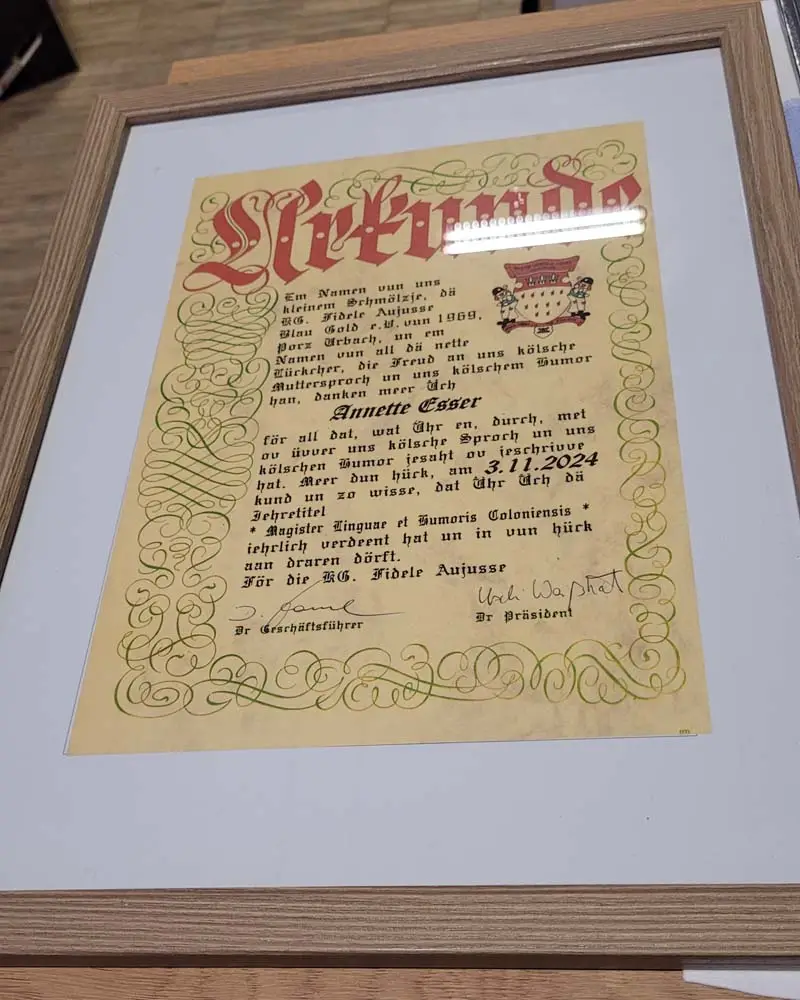 Urkunde
Em Namen vun uns
kleinem Schmölzje, dä
KG. Fidele Aujusse
Blau Gold e.V. vun 1969,
Porz Urbach, un em
Namen vun all dä nette
Lückcher, die Freud an uns kölsche
Muttersproch un uns kölschem Humor
han, danken meer Üch
Annette Esser
för all dat, wat Ühr en, durch, met
ov üvver uns kölsche Sproch un uns
kölschen Humor jesaht ov jeschrivve
hat. Meer dun hück, am 3.11.2024
kund un zo wisse, dat Ühr Üch dä
Iehretitel
* Magister Linguae et Humoris Coloniensis *
iehrlich verdeent hat un in vun hück
aan draren dörft.
För die KG. Fidele Aujusse
Dr Geschäftsführer
Dr Präsident